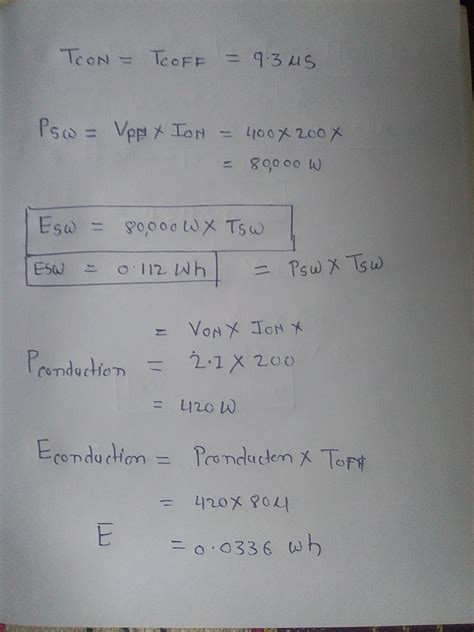 TCON = TCOFF = 9.3 μS
PSW = VPN × ION = 400 × 200 ×
= 80,000 W
ESW = 80,000 W × TSW
ESW = 0.112 Wh = PSW × TSW
= VON × ION ×
Pconduction = 2.1 × 200
= 420 W
Econduction = Pconducten × TOFF
= 420 × 80μ
E = 0.0336 wh